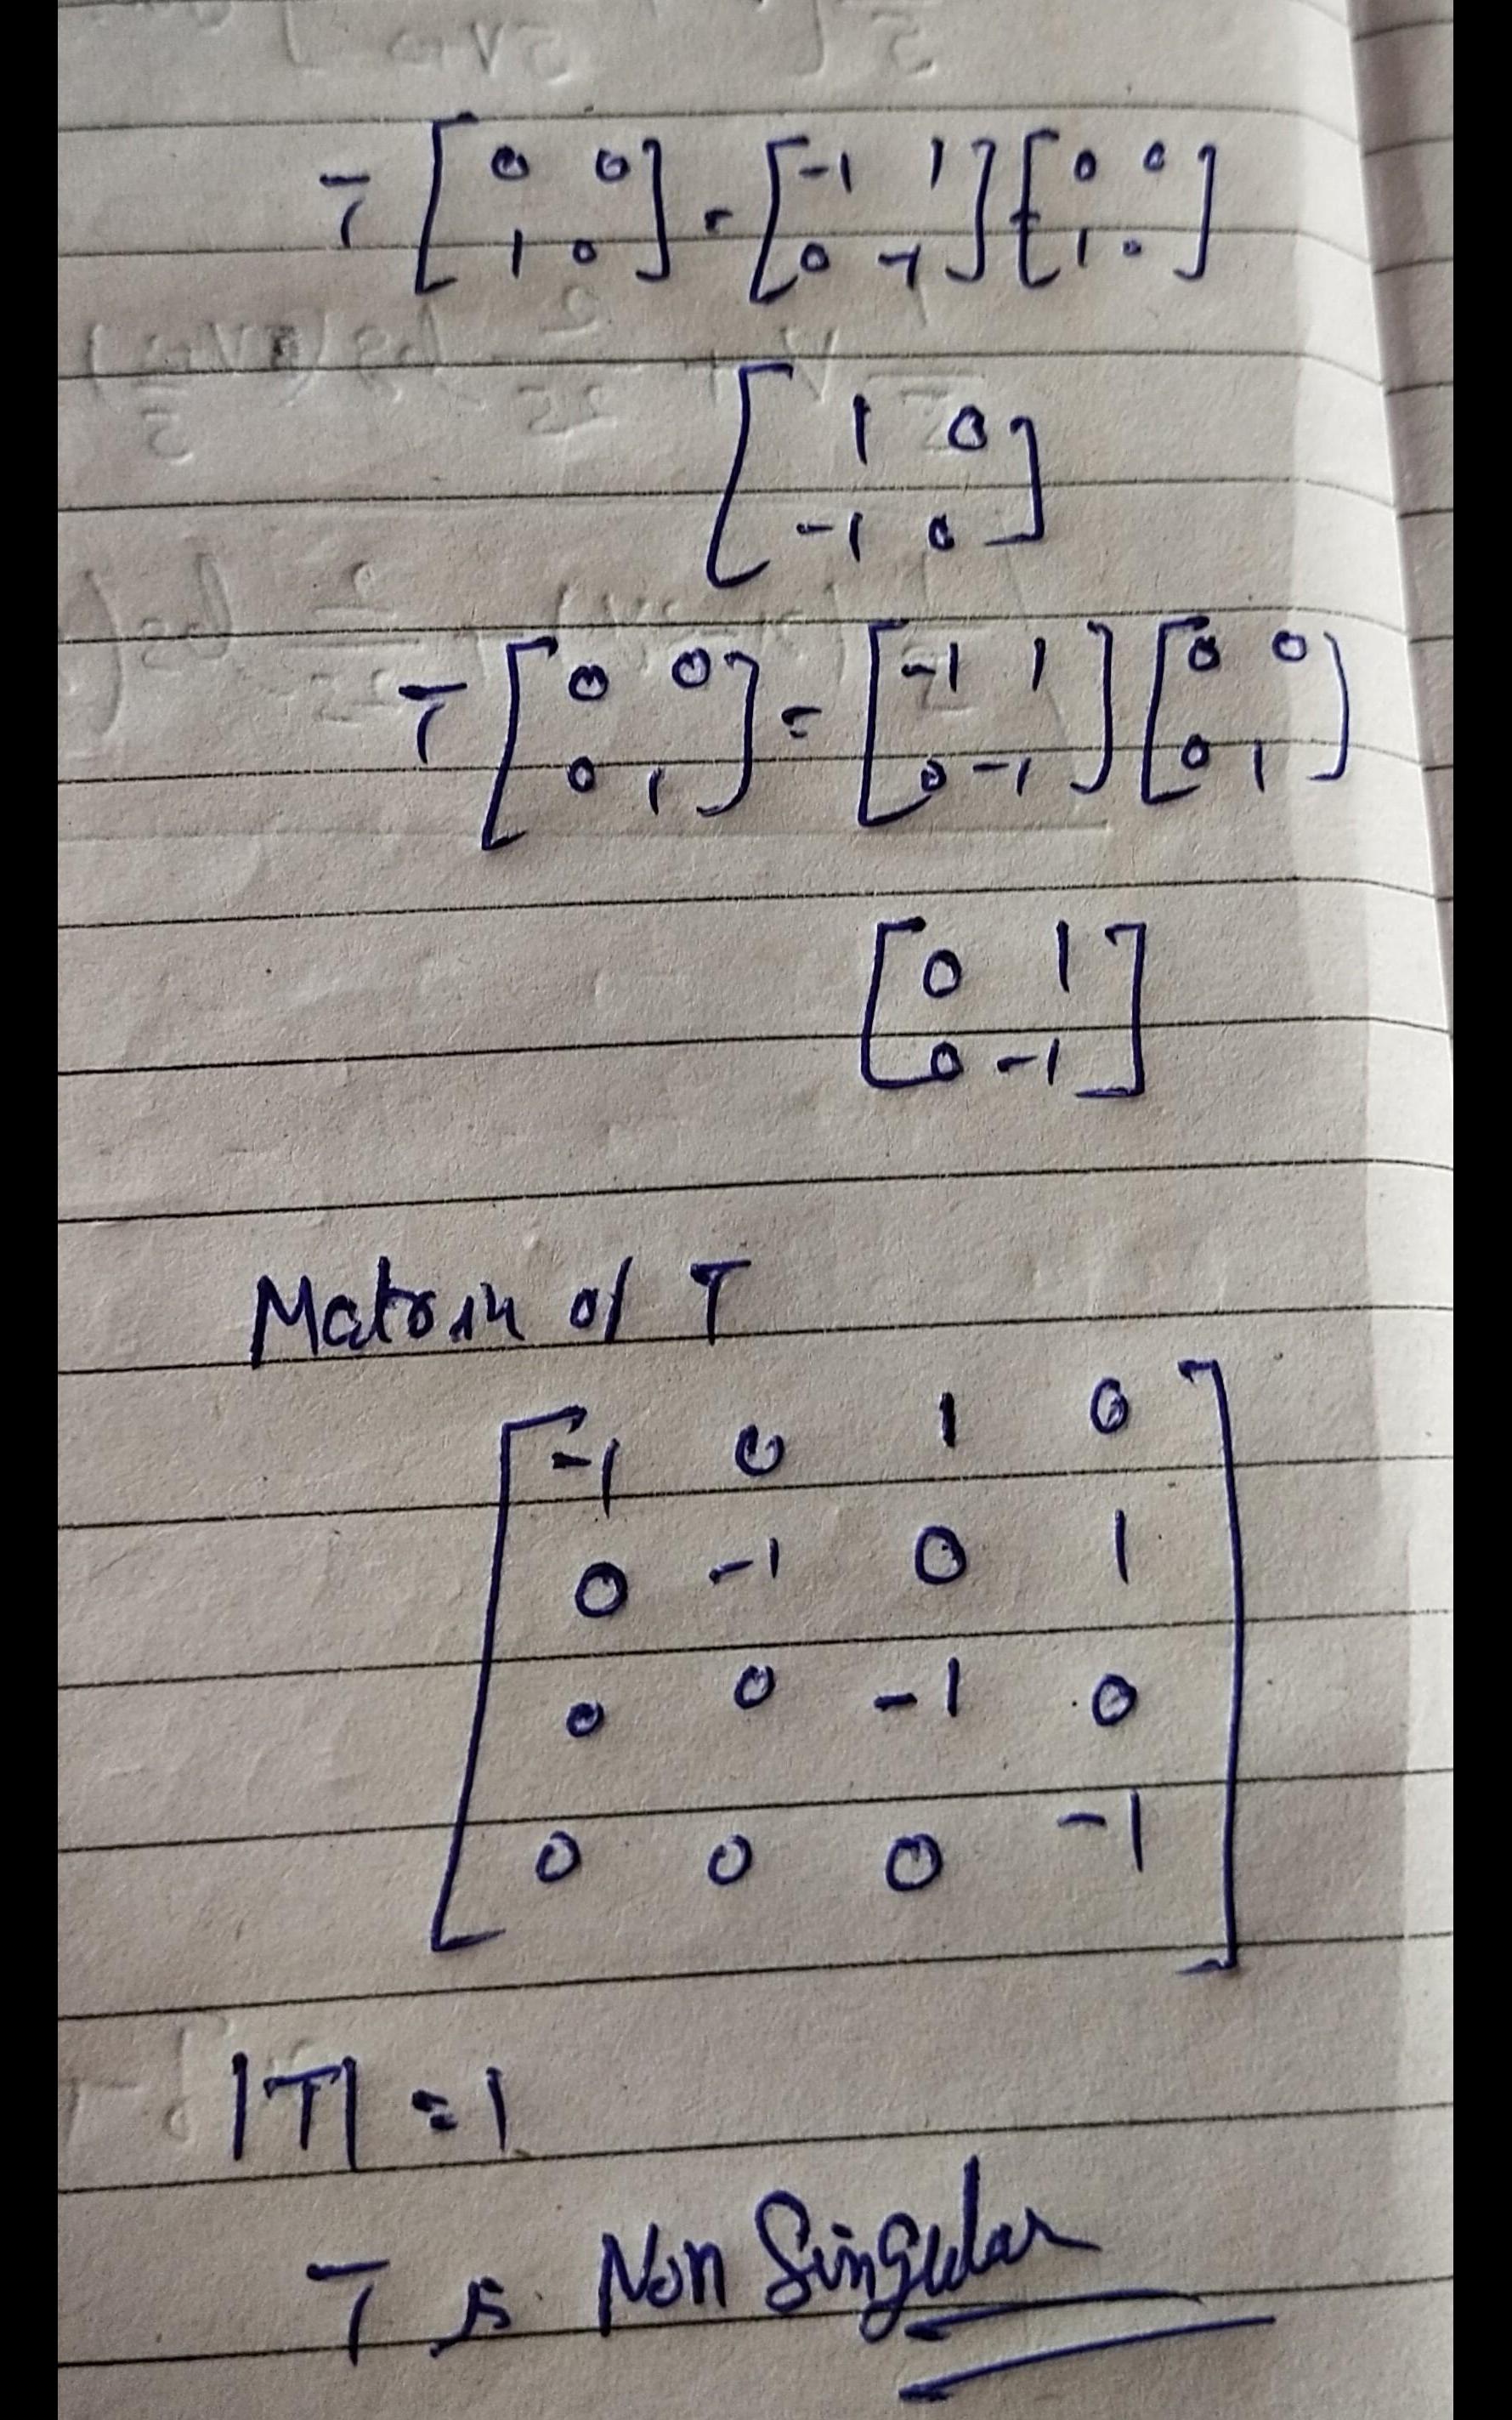 T [ 0 0 ] = [ -1 1 ] [ 0 0 ]
[ 1 0 ] [ 0 -1 ] [ 1 0 ]
[ 1 0 ]
[ -1 0 ]
T [ 0 0 ] = [ -1 1 ] [ 0 0 ]
[ 0 1 ] [ 0 -1 ] [ 0 1 ]
[ 0 1 ]
[ 0 -1 ]
Matrix of T
[ -1 0 1 0 ]
[ 0 -1 0 1 ]
[ 0 0 -1 0 ]
[ 0 0 0 -1 ]
|T| = 1
T is Non Singular